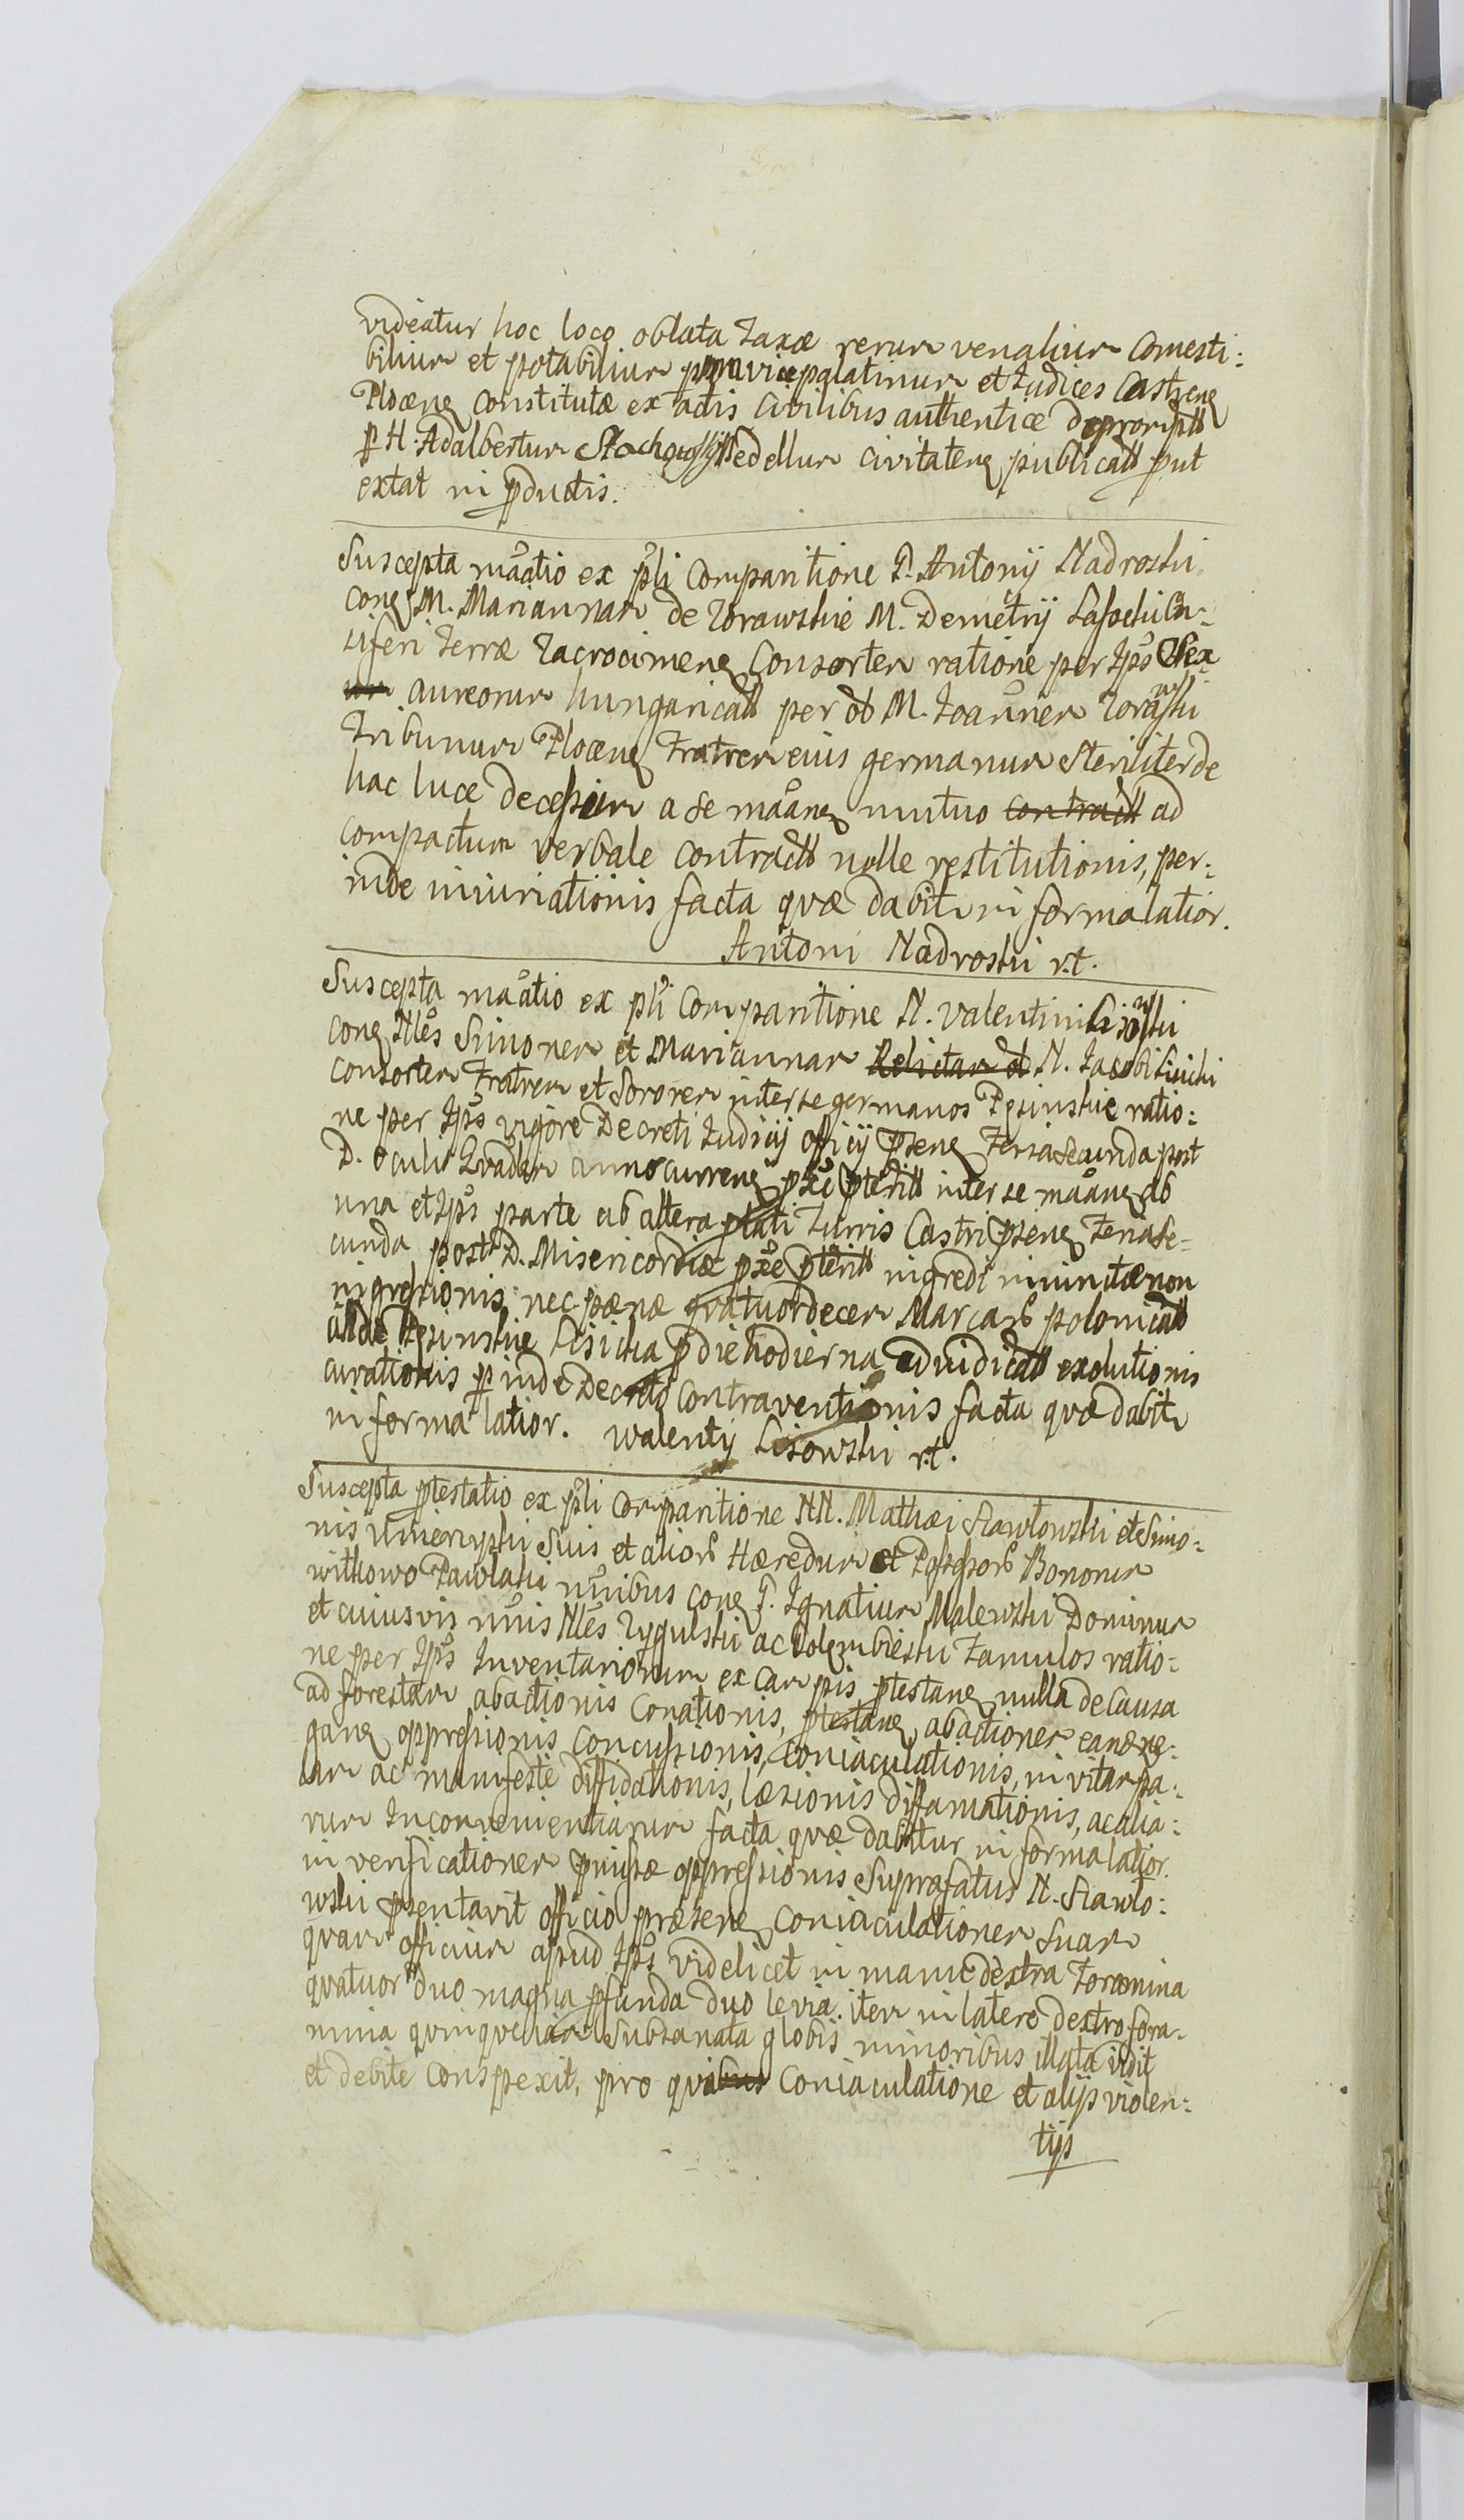 videatur hoc loco oblata Taxæ rerum venalium Comesti:
bilium et potabilium vicepalatinum et Judices Castren
Plocen constitutæ ex actis Civilibus authentice depromptt
p H. Adalbertum edellum civitaten publicatt put
extat in pductis.
Suscepta maatio ex pli Comparitione P. Antonij Nadroski
con M. Mariannam de Zorawskie M. Demetrij Lasocki En:
siferi Terræ Zacrocimen Consortem ratione per Jps Sex
aureorum hungaricall per ol M. Joannem Zorawski
Tribunum Plocen Fratrem eius germanum Steriliter de
hac luce decessum a se maane mutuo contractt ad
compactum verbale contractt nolle restitutionis, per:
inde iniuriationis facta quæ dabitr in forma latior.
Antoni Nadroski r.t.
Suscepta maatio ex pli Comparitione N. Valentini Lisowski
con Nlles Simonem et Mariannam Relictam ol N. Jacobi Lisicki
Consortem Fratrem et Sororem inter se germanos ratio:
ne per Jps vigore Decreti Judicij officij Psene Feria secunda post
D. Oculi Qvadlem anno curren pxie pteritt inter se maane ab
una et Jps parte ab altera plati Turris Castri psene Feria Se:
cunda post D. Misericordiæ pxie pteritt ingredi non
ingressionis, nec pænæ qvatuordecem Marcarb polonicall
Lisicka p die hodierna adiudicatt exolutionis
curationis p inde Decreto Contraventionis facta quæ dabitr
in forma latior. Walenty Lisowski r.t.
Suscepta ptestatio ex pli Comparitione NN. Mathæi Rawłowski et Simo:
nis Suis et aliorb Hæredum et Possessorb Bonorum
Witkowo Pawlaki nuibus con P. Ignatium Malewski Dominum
et cuiusvis nuis Nlles Zygulski ac Golembieski Famulos ratio:
ne per Jps Inventariorum ex Campis ptestane nulla de Causa
ad forestam abactionis Conationis, ptestane abactionem eam ne:
gane oppressionis Concussionis, Coniaculationis, in vitam pa:
lam ac manifeste diffidationis, læsionis diffamationis, ac alia:
rum Inconvenientiarum facta quæ dabitur in forma latior.
in verificationem pmissæ oppressionis Suprafatus N. Rawło:
wski psentavit officio præsene Coniaculationem Suam
quam officium apud Jps videlicet in manu dextra Foramina
qvatuor duo magna pfunda duo levia. item in latere dextro fora:
mina qvinqve iam Subsanata globis minoribus illata vidit
et debite Conspexit, pro quibus Coniaculatione et alijs violen:
tijs